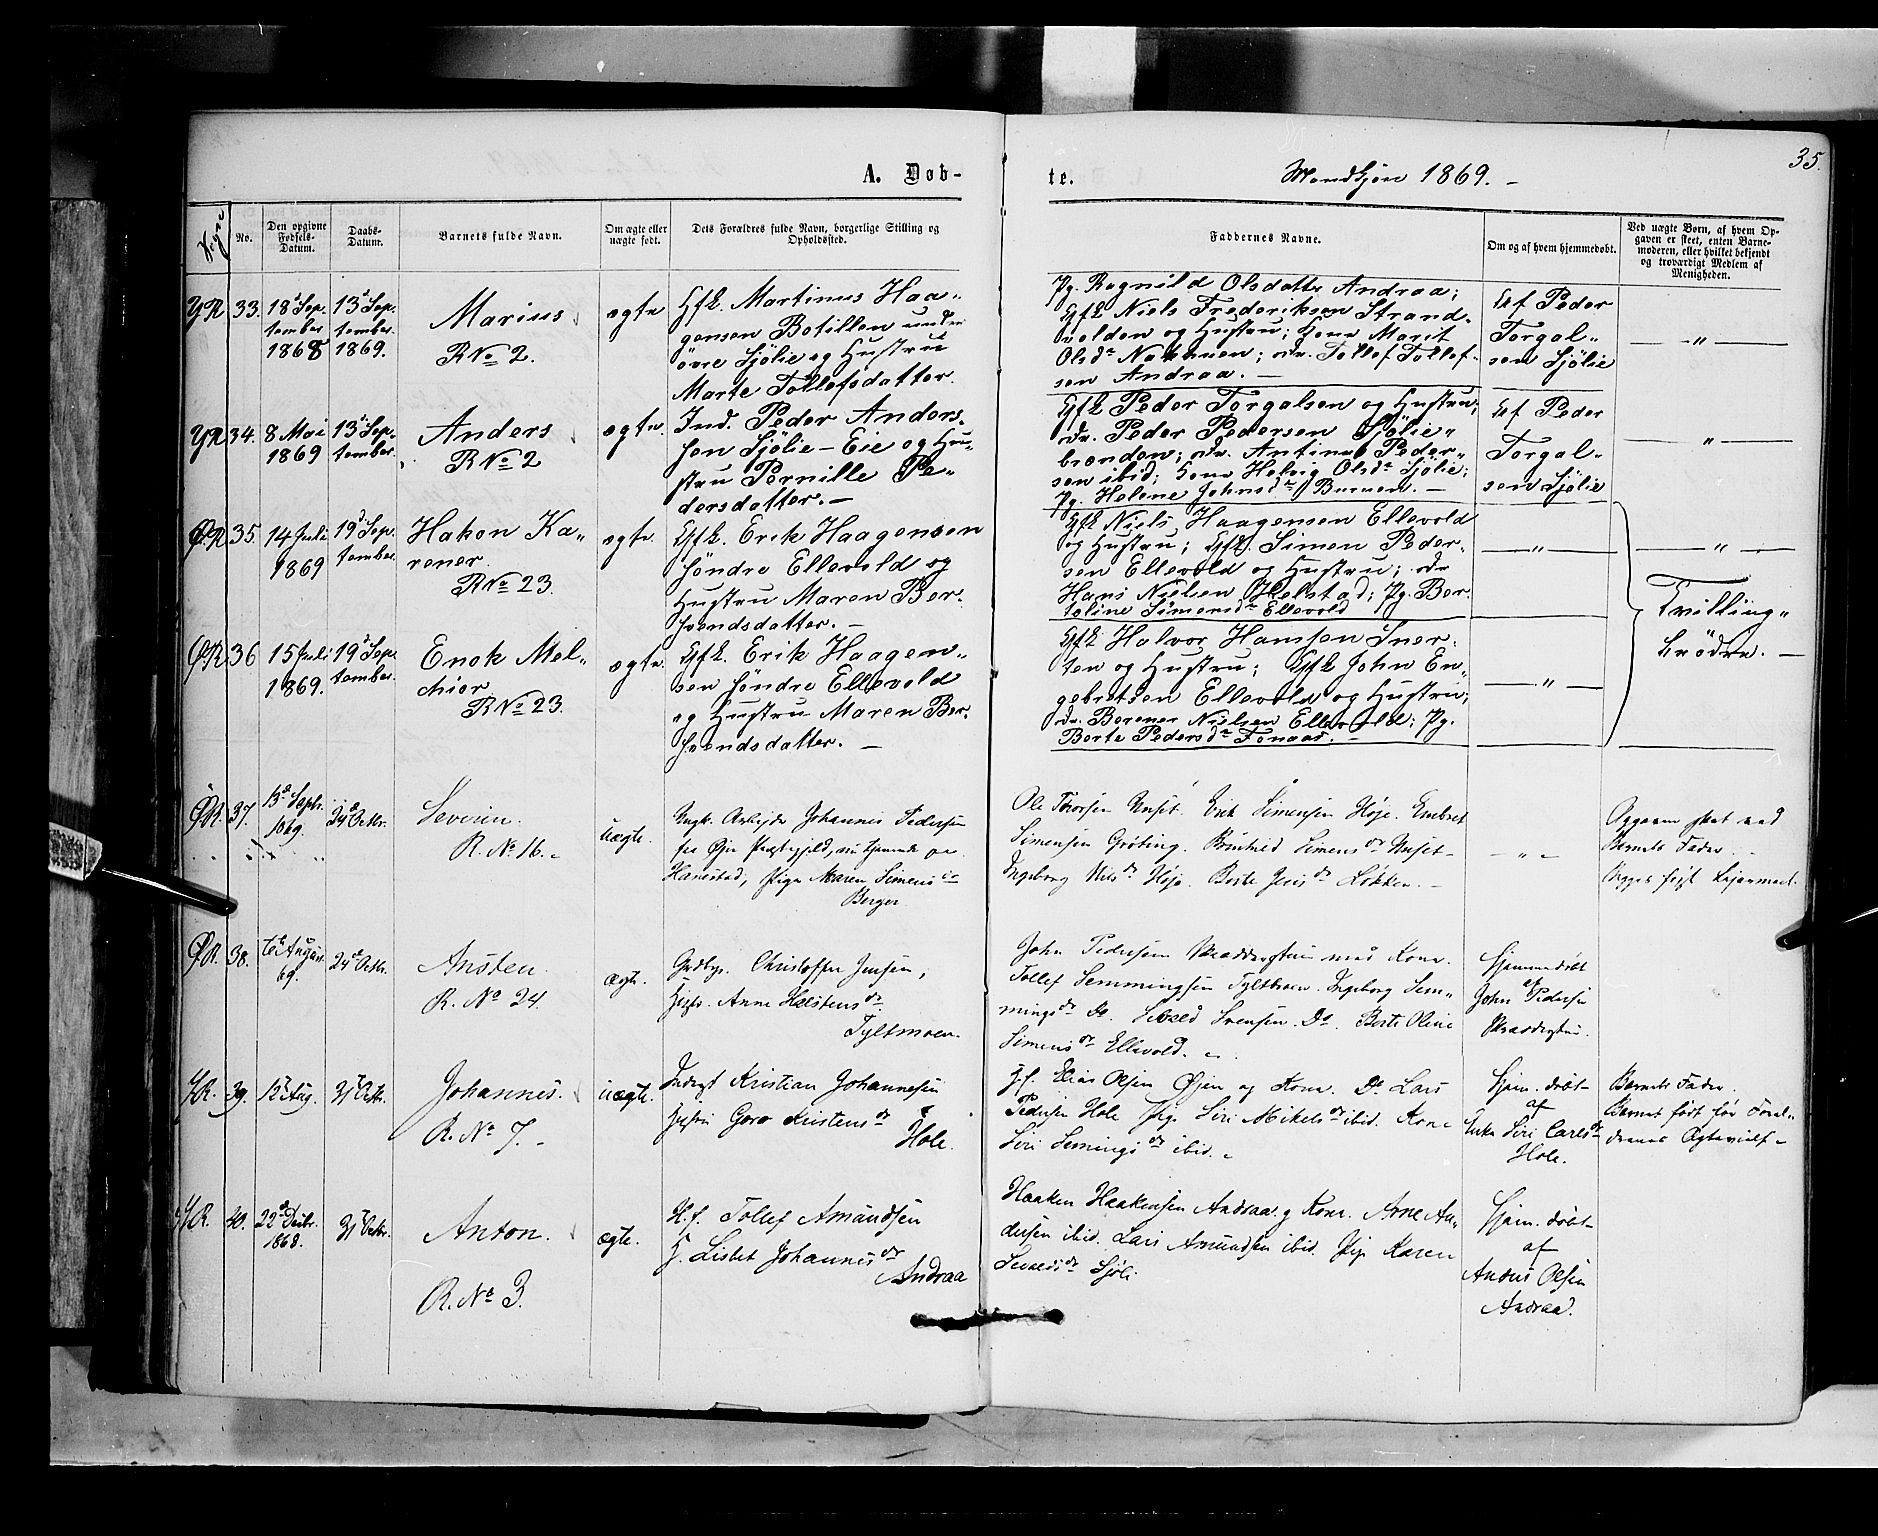 35.
A. Døb-
te.
Mandkjøn 1869. –
No.
Den opgivne Fødsels-Datum.
Daabs-Datum.
Barnets fulde Navn.
Om ægte eller uægte født.
Dets Forældres fulde Navn, borgerlige Stilling og Opholdssted.
Faddernes Navne.
Om og af hvem hjemmedøbt.
Ved uægte Børn, af hvem Op-
gaven er skeet, enten Barne-
moderen, eller hvilket bekjendt
og troværdigt Medlem af
Menigheden.
YR 33. 18 Sep-
tember
1868
13 Sep-
tember
1869.
Marius
R No 2.
ægte
Gfk. Martinus Haa-
gensen Botillen under
övre Sjölie og Hustru
Marte Tollefsdatter.
Pg. Ragnild Olsdatter Andraa;
Gfk Niels Frederiksen Strand-
volden og Hustru; Kone Marit
Olsdr; Tollef Tollef-
sen Andraa. –
Af Peder
Torgal-
sen Sjölie
— „ —
YR 34. 8 Mai
1869
13 Sep-
tember
Anders
R No 2
ægte
Ind. Peder Anders-
sen Sjölie-Eie og Hu-
stru Pernille Pe-
dersdatter. –
Gfk Peder Torgalsen og Hustru;
Peder Pedersen Sjölie-
brenden; Antinus Peder-
sen ibid; Kone Helvig Olsdr Sjölie;
Pg. Helene Johnsdr –
Af Peder
Torgal-
sen Sjölie
— „ —
ØR 35 14 Juli
1869
19 Sep-
tember
Hakon Ka-
rener
R No 23.
ægte
Gfk. Erik Haagensen
söndre Ellevold og
Hustru Maren Ber-
svendsdatter. –
Gfk Niels Haagensen Ellevold
og Hustru; Gfk. Simen Peder-
sen Ellevold og Hustru;
Hans Nielsen Helstad; Pg. Ber-
toline Simensdr Ellevold
— „ —
— „ —
Tvilling-
brödre. –
ØR 36 15 Juli
1869.
19 Sep-
tember
Enok Mel-
chior
R No 23.
ægte
Gfk. Erik Haagen-
sen söndre Ellevold
og Hustru Maren Ber-
svendsdatter. –
Gfk Halvor Hansen Sner-
ten og Hustru; Gfk John En-
gebretsen Ellevold og Hustru;
Berener Nielsen Ellevold; Pg.
Berte Pedersdr Fonaas. –
— „ —
ØR. 37. 13de Septr.
1869.
24de Octbr.
Severin.
R. No 16. –
uægte.
Ungk. Arbeider Johannes Pedersen
fra Øjer Præstegjeld, nu tjenende paa
Hanestad, Pige Maren Simensdr
Berger
Ole Thorsen Unset. Erik Simensen Høje. Embret
Simensen Grøting. Simensdr Unset –
Ingeborg Nilsdr Høje. Berte Jensdr Løkken. –
— „ —
Opgaven skeet ved
Barnets Fader. –
Begges første Leiermaal.
ØR. 38. August
69.
24de Octbr.
Austen.
R. No 24.
ægte.
Grdbr. Christoffer Jensen,
Hustr. Anne Halstensdr
Tyltmoen.
John Pedersen med Kone.
Tollef Semmingsen Tyltmoen. Ingeborg Sem-
mingsdr Do. Svensen. Do. Berte Oline
Simensdr Ellevold. –
Hjemmedøbt
af
John Pedersen
YR. 39. 12 Aug.
31 Octbr.
Johannes.
R. No 7. –
uægte.
Inderst Kristian Johannesen
Hustru Goro Kristensdr
Hole.
G.f. Elias Olsen Øjen og Kone. Do Lars
Pedersen Hole Pige Siri Mikelsdr ibid. Kone
Siri Semingsdr ibid. –
Hjem. døbt
af
Enke Siri Carlsdr
Hole.
Barnets Fader.
Barnet født før Foræl-
drenes Ægteskab –
YR. 40. 22de Decbr.
1868.
31 Octbr.
Anton.
R. No 3.
ægte.
H.f. Tollef Amundsen
H. Lisbet Johannesdr
Andraa
Haaken Haakensen Andraa og Kone. Arne An-
dersen ibid. Lars Amundsen ibid. Pige Karen
Sjøli
Hjem. døbt
af
Anders Olsen
Andraa.